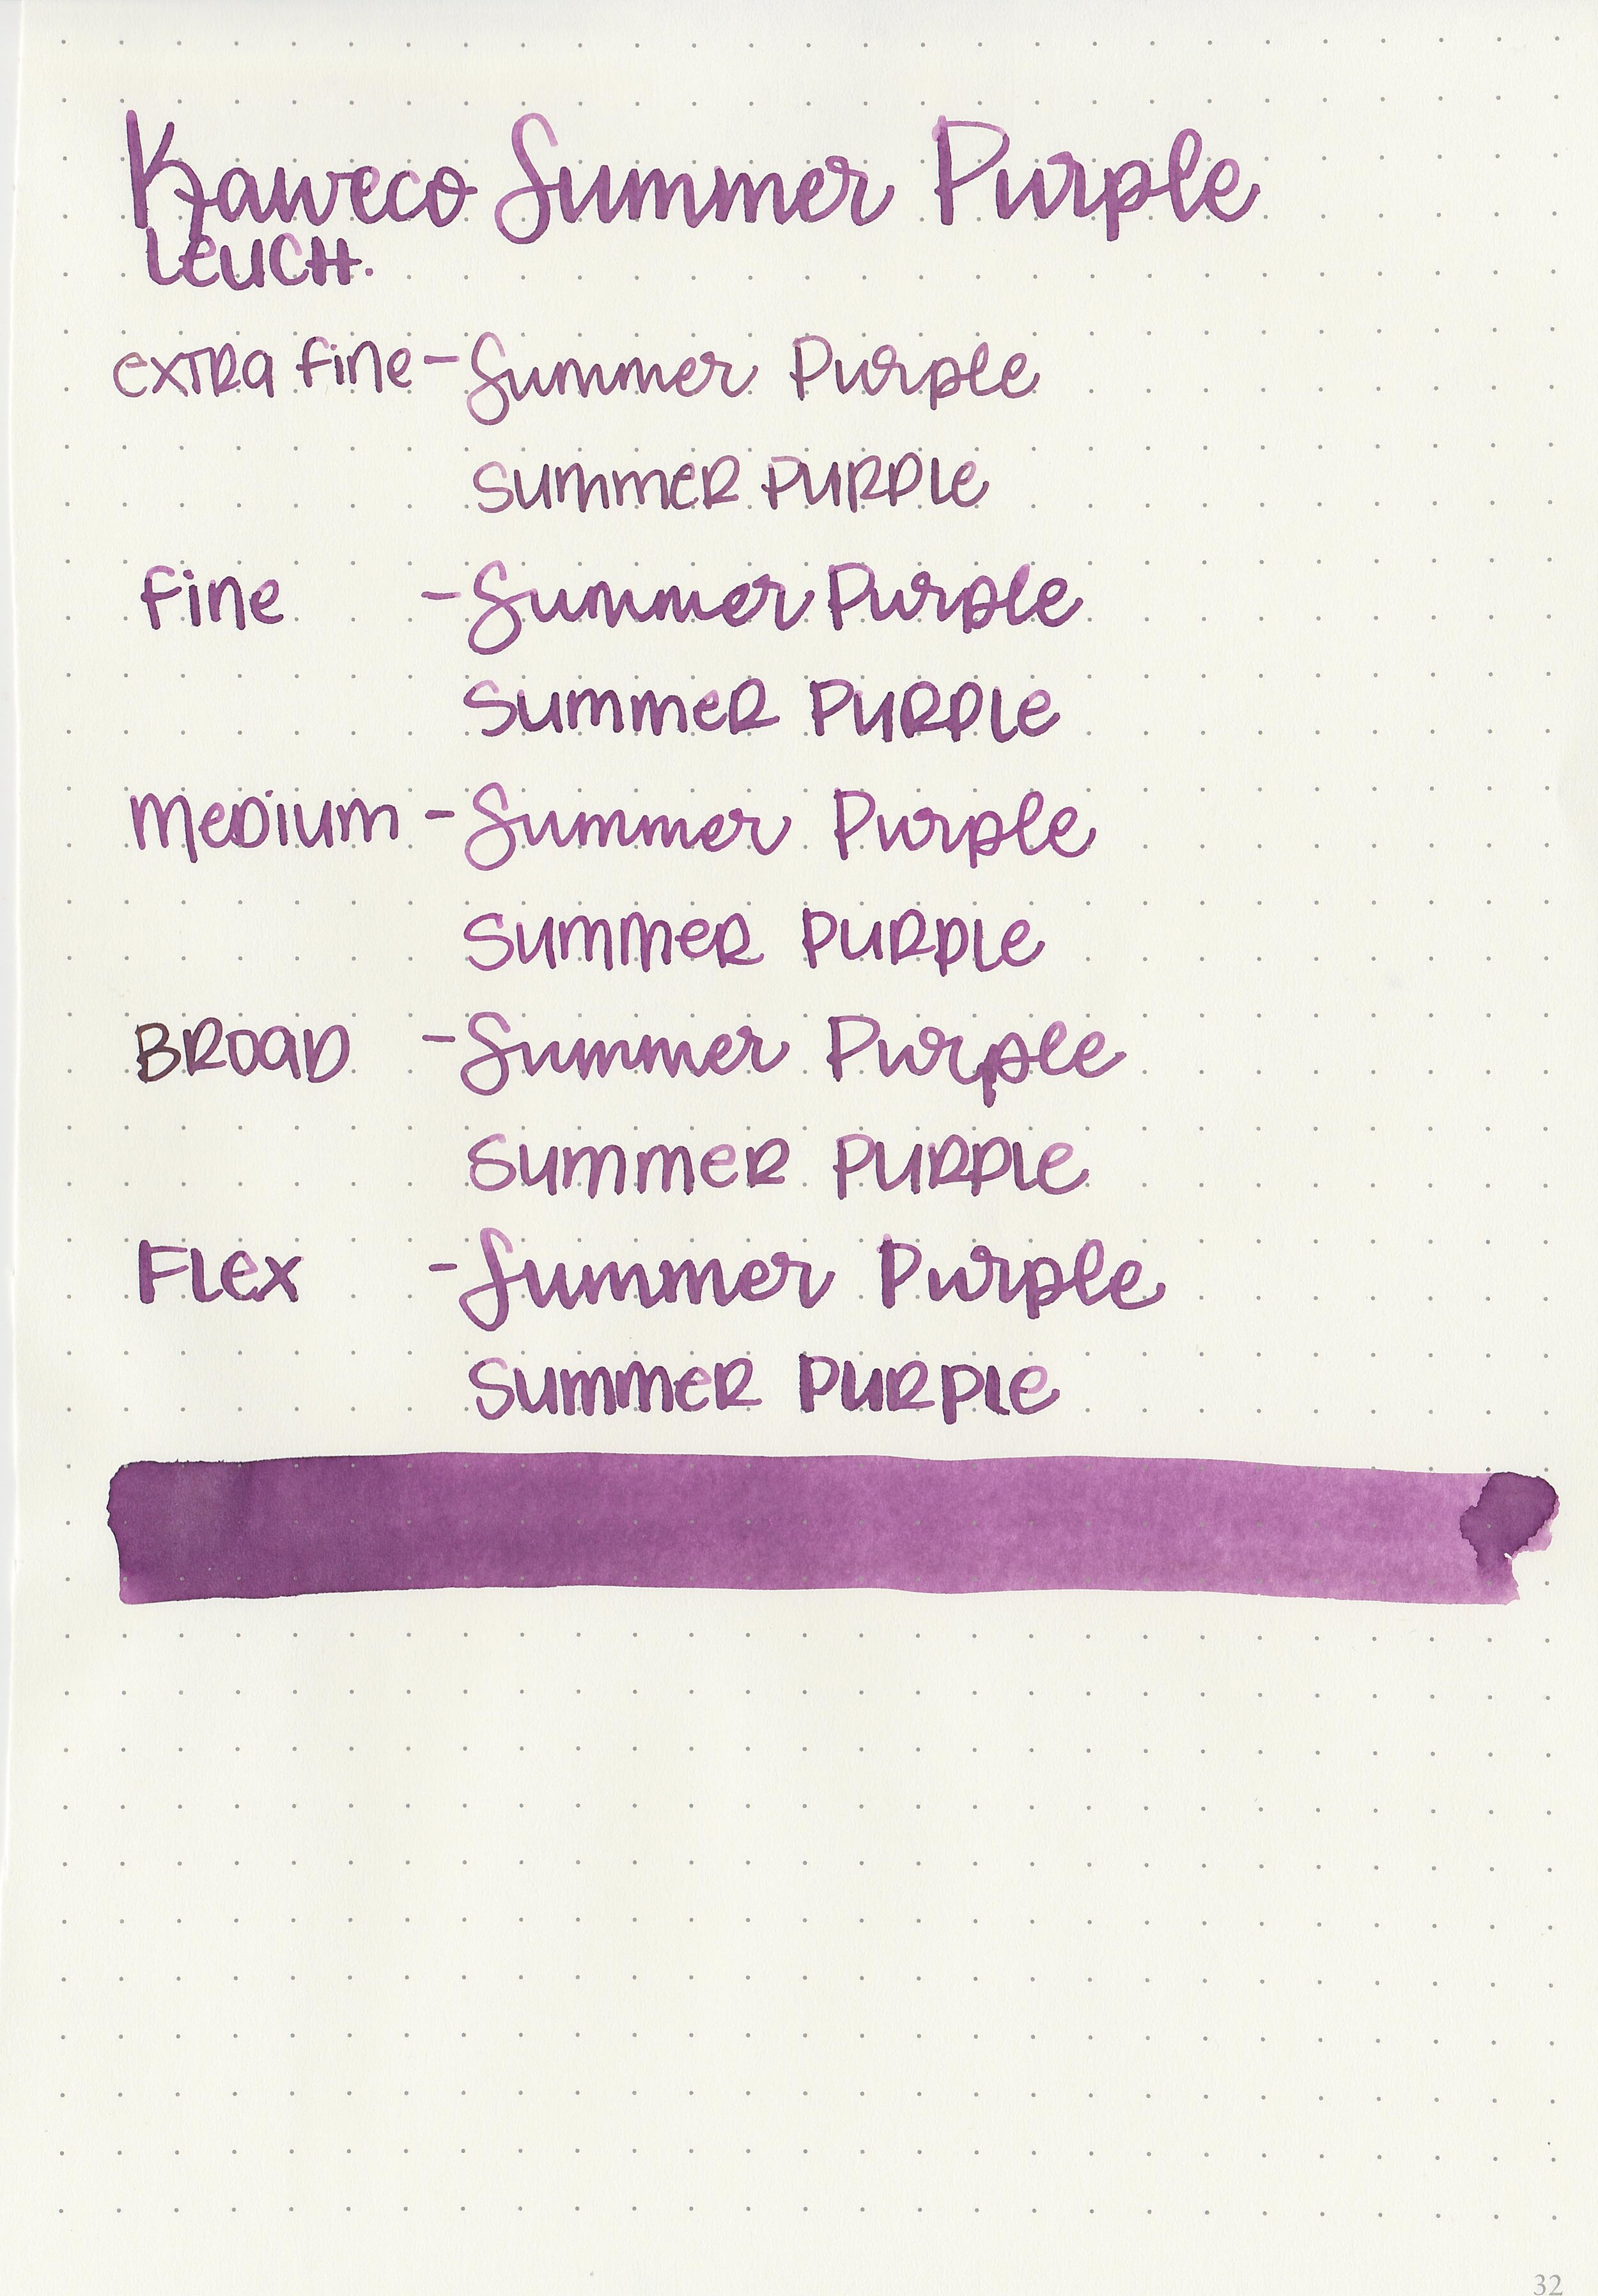 Kaweco Summer Purple
Leuch.
extra fine - Summer Purple
Summer Purple
Fine - Summer Purple
Summer Purple
Medium - Summer Purple
Summer Purple
Broad - Summer Purple
Summer Purple
Flex - Summer Purple
Summer Purple
32